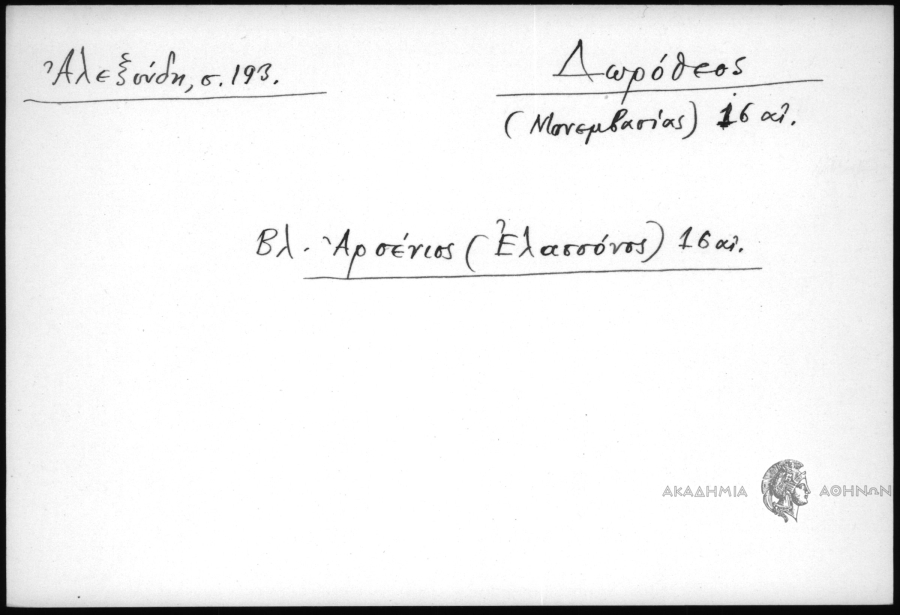 Ἀλεξούδη, σ. 193.
Δωρόθεος
(Μονεμβασίας) 16 αἰ.
Βλ. Ἀρσένιος (Ἐλασσόνος) 16 αἰ.
ΑΚΑΔΗΜΙΑ ΑΘΗΝΩΝ